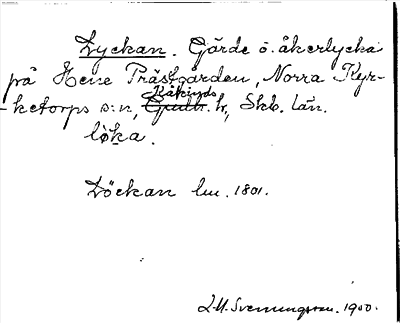 Lyckan. Gärde o. åkerlycka
på Hene Prästgården, Norra Kyr-
-ketorps s:n, Kåkinds h, Skb. län.
löka.
Löckan lm. 1801.
L.M. Svenungsson. 1900.